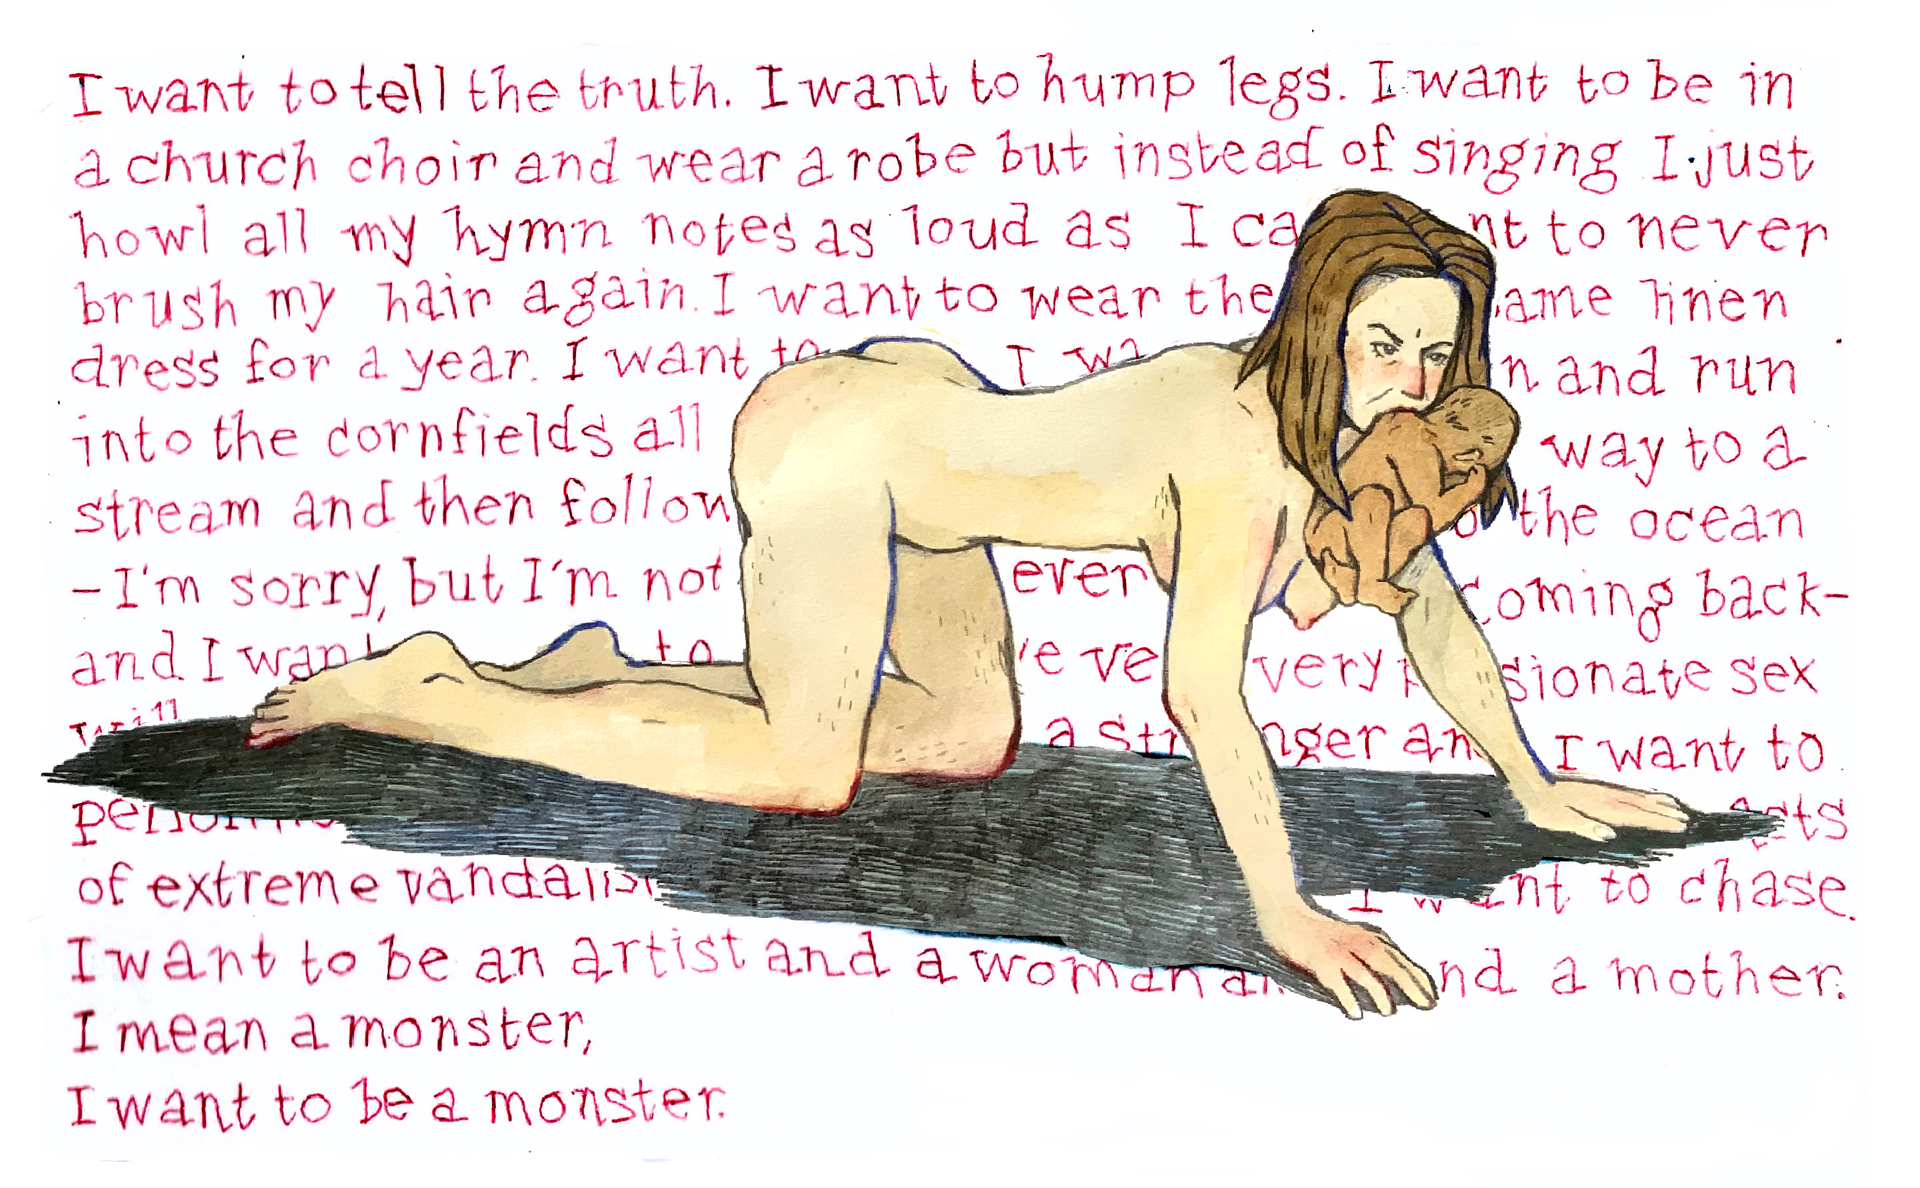 I want to tell the truth. I want to hump legs. I want to be in
a church choir and wear a robe but instead of singing I just
howl all my hymn notes as loud as I to never
brush my hair again. I want to wear the linen
dress for a year. I want and run
into the cornfields all way to a
stream and then the ocean
-I'm sorry, but I'm not ever coming back-
and I very sex
a I want to
of extreme to chase.
I want to be an artist and a woman a mother.
I mean a monster,
I want to be a monster.